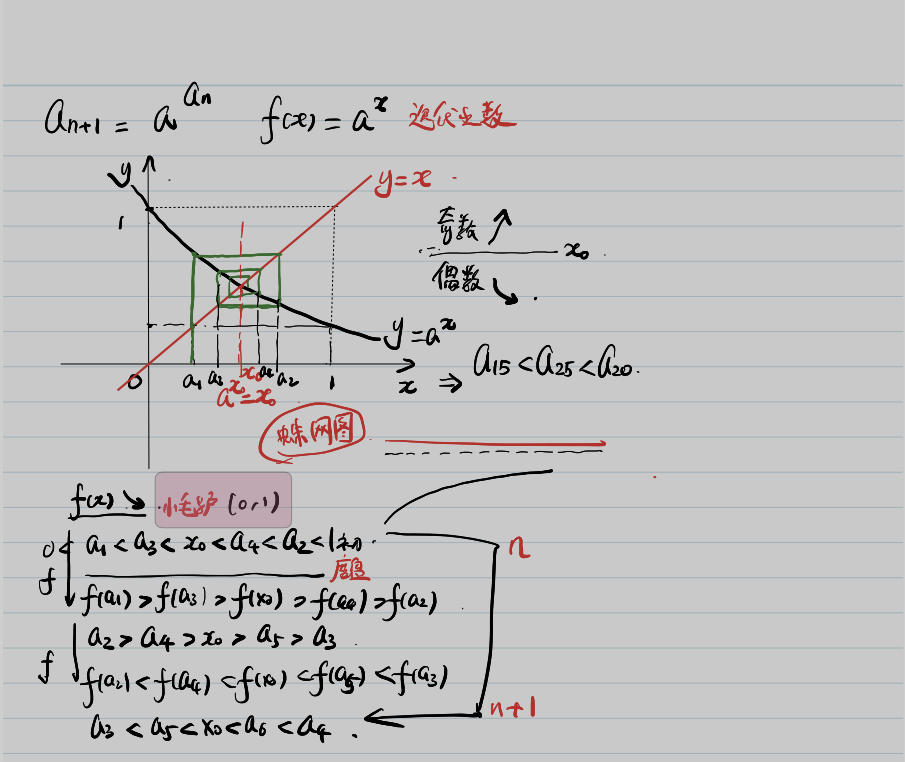 a_{n+1} = a^{a_n} f(x) = a^x 迭代函数
y
y=x
1
奇数 ↗
x_0
偶数 ↘
y=a^x
0 a_1 a_3 x_0 a_4 a_2 1 x
a^{x_0}=x_0
⇒ a_{15}<a_{25}<a_{20}.
蛛网图
f(x) ↘ 小毛驴 (0,1)
0< a_1<a_3<x_0<a_4<a_2<1
f
f(a_1)>f(a_3)>f(x_0)>f(a_4)>f(a_2)
n
a_2>a_4>x_0>a_5>a_3
f
f(a_2)<f(a_4)<f(x_0)<f(a_5)<f(a_3)
a_3<a_5<x_0<a_6<a_4.
n+1